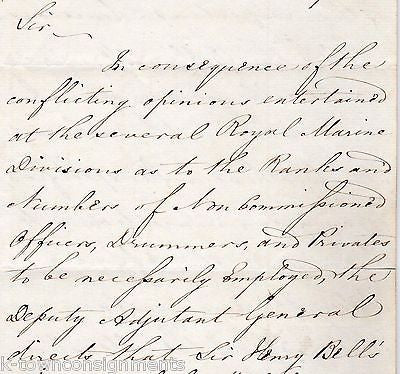 Sir
In consequence of the
conflicting opinions entertained
at the several Royal Marine
Divisions as to the Ranks and
Numbers of Non Commissioned
Officers, Drummers, and Privates
to be necessarily Employed, the
Deputy Adjutant General
directs that Sir Henry Bell's
k-townconsignments